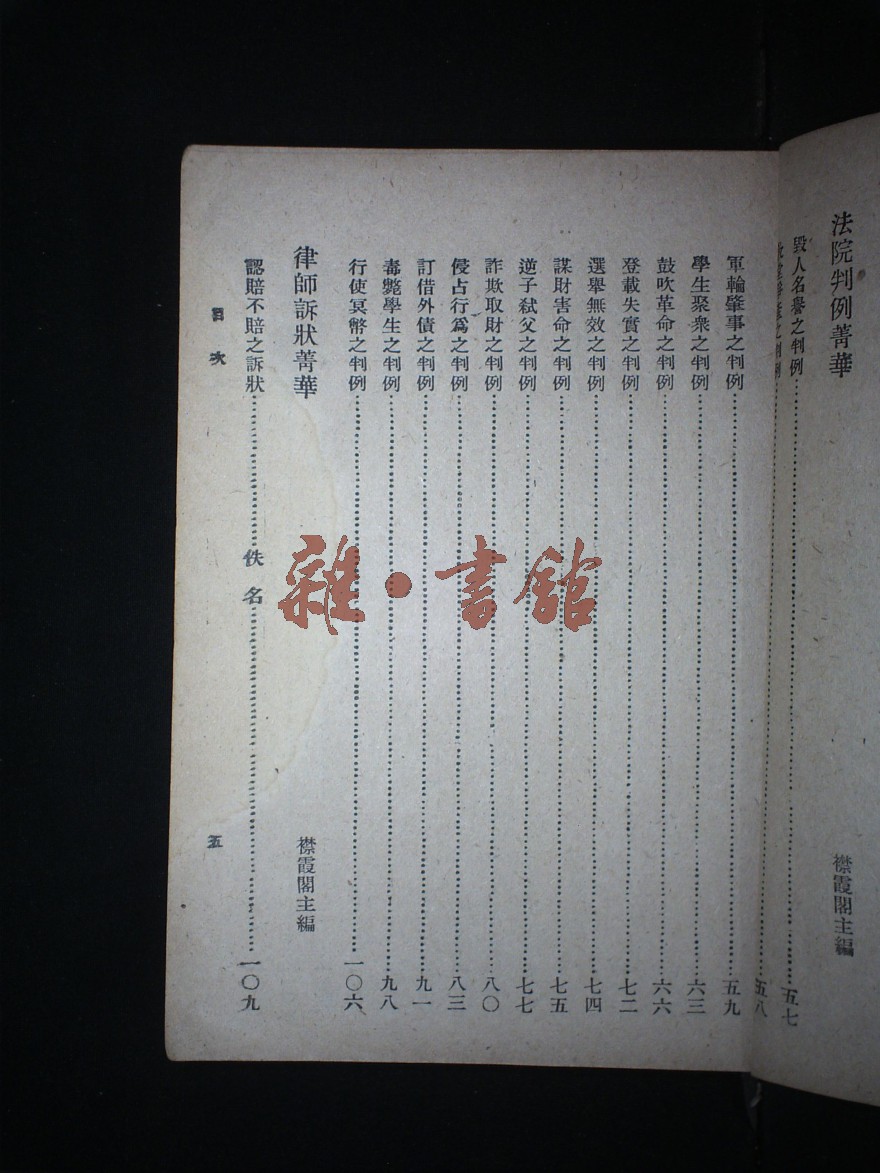 法院判例菁華 襟霞閣主編
毀人名譽之判例 五七
之判例 五八
軍輪肇事之判例 五九
學生聚衆之判例 六三
鼓吹革命之判例 六六
登載失實之判例 七二
選舉無效之判例 七四
謀財害命之判例 七五
逆子弑父之判例 七七
詐欺取財之判例 八〇
侵占行爲之判例 八三
訂借外債之判例 九一
毒斃學生之判例 九八
行使冥幣之判例 一〇六
律師訴狀菁華 襟霞閣主編
認賠不賠之訴狀 佚名 一〇九
目次 五
雜·書館